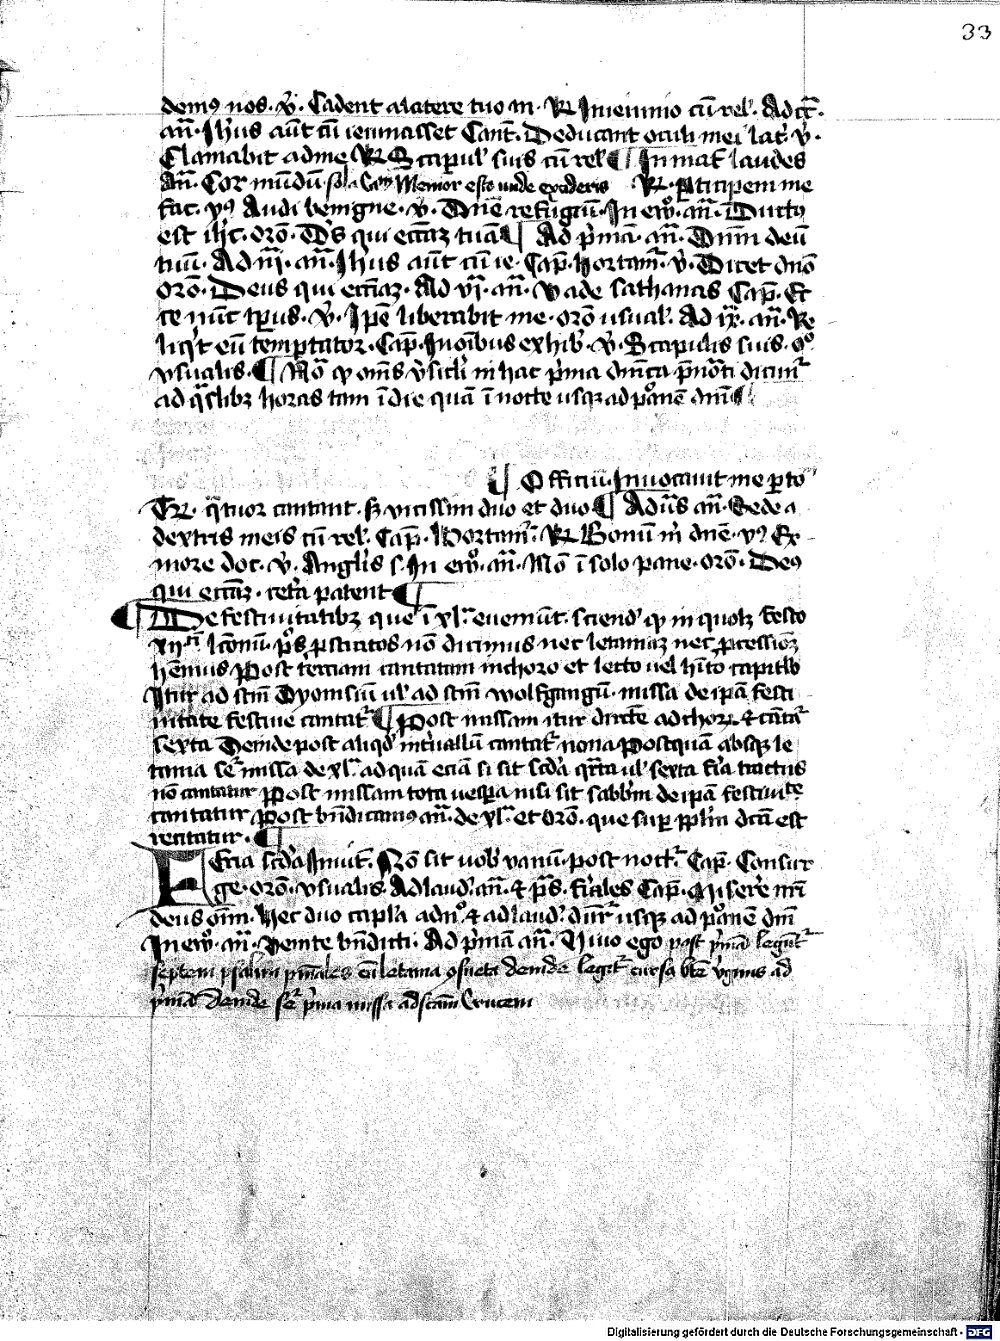 33
demꝰ nos · v̄ · Cadent a latere tuo m · R̄ In ieiunio cū rel · Ad cā ·
añ · Ihūs aūt cū ieiunasset Cant̄ · Deducant oculi mei lac̄ v̄ ·
Clamabit ad me R̄ Scapul̄ suis cū rel ¶ In mat̄ laudes
añ · Cor mūdū sola Cap Memor esto unde R̄ · ꝑticipem me
fac · vꝰ Audi benigne · v̄ · Dn̄e refugiū · In ew̄ · añ · Ductꝰ
est ih̄c · orō · Ds̄ qui ecc̄az tuā ¶ Ad p̄mā · añ · Dn̄m deū
tuū · Ad iij · añ · Ihūs aūt cū ie · Cap̄ · hortam̄ · v̄ · Dicet dn̄o
orō · Deus qui ecc̄iaz · Ad vj · añ · Vade sathanas Cap̄ · Et
ce nūc tp̄us · v̄ · Ip̄e liberabit me · orō usual · Ad ix · añ · Re
liq̄t eū temptator · Cap̄ · In oībus exhib · v̄ · Scapulis suis · oō
usualis · ¶ Nō qꝫ om̄s v̄sicl̄i in hac p̄ma dn̄ica p̄nōti dicunt̄
ad q̄slibꝫ horas tam ī die quā ī nocte usqꝫ ad pōnē dn̄i
¶ Officiū Inuocauit me ꝑ to
Tr̄ · q̄tuor cantant · sꝫ vicissim duo et duo ¶ Ad ūs añ · Sede a
dextris meis cū rel · Cap̄ · Hortam̄ · R̄ Bonū m̄ dn̄e · vꝰ Ex
more doc · v̄ · Angl̄is s · In ew̄ · añ · Nō ī solo pane · orō · Deꝰ
qui ecc̄iaz · cetā patent ¶
¶ De festiuitatibꝫ que ī xl̄ eueniūt · sciend qꝫ in quolꝫ festo
xij lc̄onū · p̄s ꝓstratos nō dicimus nec letaniaz nec ꝓcessiōꝫ
hēmus Post terciam cantatam in choro et lecto uel h̄ito capitl̄o
Itur ad scm̄ Dyonisiū ul̄ ad scm̄ wolfgangū · missa de ip̄a festi
uitate festiue cantat̄ ¶ Post missam itur directe ad choꝝ & cātat̄
sexta Deinde post aliqd̄ int̄uallū cantat̄ nona Postquā absqꝫ le
tania ser̄ missa de xl̄ ad quā eciā si sit scd̄a q̄rta ul̄ sexta fīa tractus
nō cantatur Post missam tota uesꝑa nisi sit sabb̄m de ip̄a festiuite
cantatur Post bn̄dicamꝰ añ · de xl̄ et orō · que suꝑ ppl̄m dc̄a est
recitatur · ¶
Feria scd̄a Inuit̄ · Nō sit uob̄ vanū · post noct̄ Cap̄ · Consur
ge · orō · usualis · Ad laud̄ · añ · & p̄s · fīales Cap̄ · Miserere nr̄i
deus om̄ · Hec duo capl̄a ad nō & ad laud̄ dn̄r̄ usqꝫ ad pōnē dn̄i
In ew̄ · añ · Venite bn̄dicti · Ad p̄mā añ · Viuo ego post p̄mā legūt̄
septem psalmi p̄niales cū letania ꝯsueta deinde legit̄ cursꝰ btē v̄ginis ad
p̄mā deinde ser̄ p̄ma missa ad scam̄ Crucem
Digitalisierung gefördert durch die Deutsche Forschungsgemeinschaft - DFG